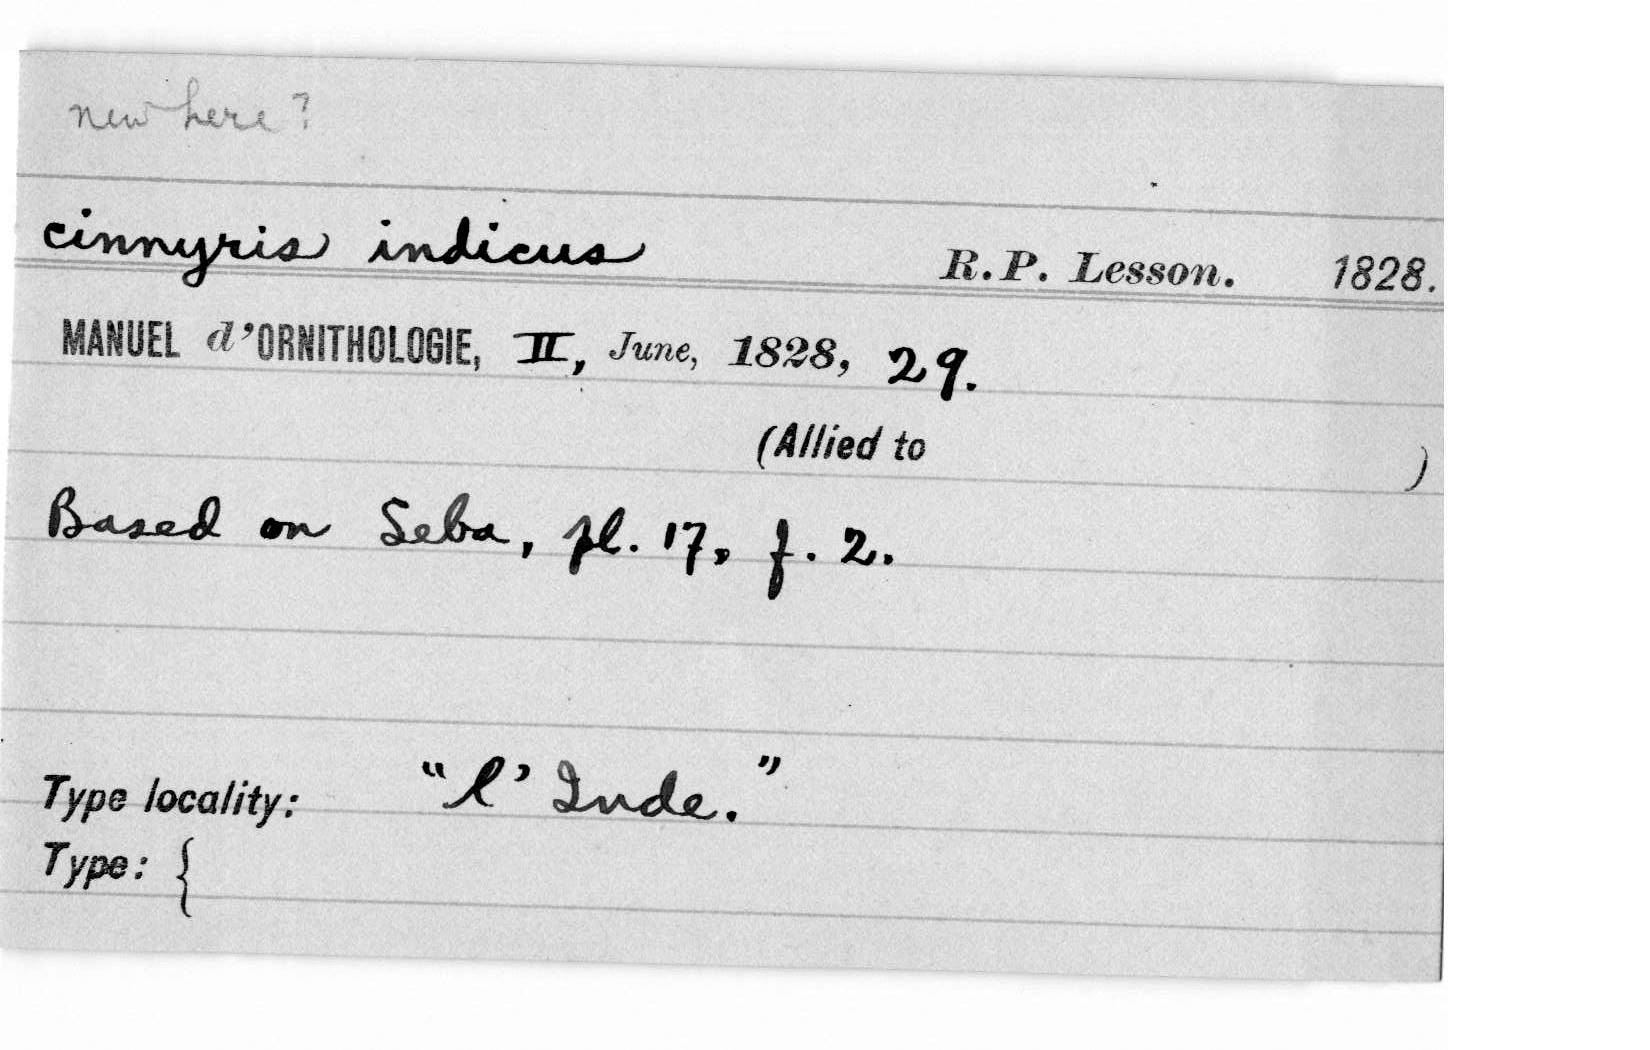 new here?
cinnyris indicus R.P. Lesson. 1828.
MANUEL d'ORNITHOLOGIE, II, June, 1828, 29.
(Allied to )
Based on Seba, pl. 17, f. 2.
Type locality: "l'Inde."
Type: {